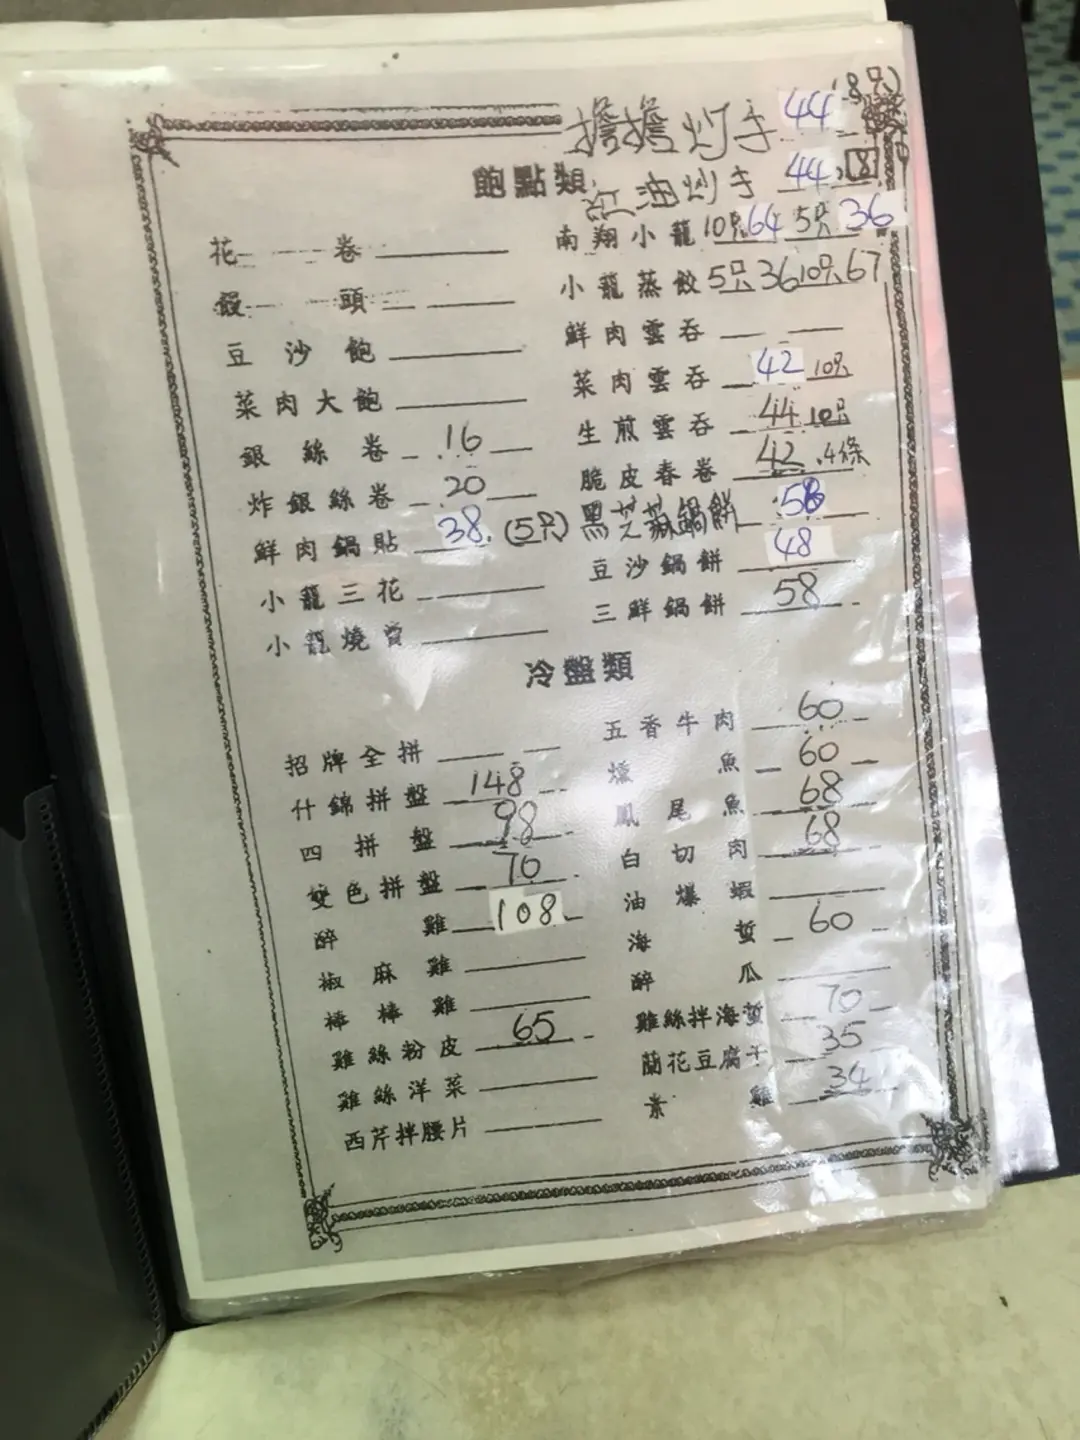 擔擔炒手 44 (8只)
飽點類
紅油炒手 44 8
花卷
南翔小籠 10只64 5只36
饅頭
小籠蒸餃 5只36 10只67
豆沙飽
鮮肉雲吞
菜肉大飽
菜肉雲吞 42 10只
銀絲卷 16
生煎雲吞 44 10只
炸銀絲卷 20
脆皮春卷 42 4條
鮮肉鍋貼 38 (5只)
黑芝蔴鍋餅 58
小籠三花
豆沙鍋餅 48
小籠燒賣
三鮮鍋餅 58
冷盤類
招牌全拼
五香牛肉 60
什錦拼盤 148
燻魚 60
四拼盤 98
鳳尾魚 68
雙色拼盤 70
白切肉 68
醉雞 108
油爆蝦
椒麻雞
海蜇 60
棒棒雞
醉瓜
雞絲粉皮 65
雞絲拌海蜇 70
雞絲洋菜
蘭花豆腐干 35
西芹拌腰片
素雞 34